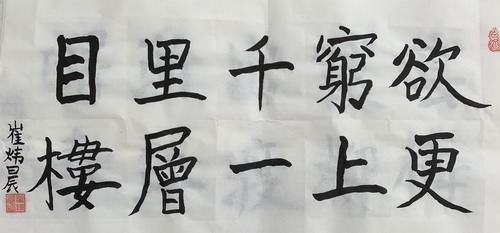 欲窮千里目
更上一層樓
崔炜晨